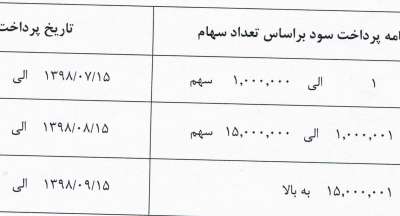 امه پرداخت سود براساس تعداد سهام تاریخ پرداخت
۱ الی ۱,۰۰۰,۰۰۰ سهم ۱۳۹۸/۰۷/۱۵ الی
۱,۰۰۰,۰۰۱ الی ۱۵,۰۰۰,۰۰۰ سهم ۱۳۹۸/۰۸/۱۵ الی
۱۵,۰۰۰,۰۰۱ به بالا ۱۳۹۸/۰۹/۱۵ الی